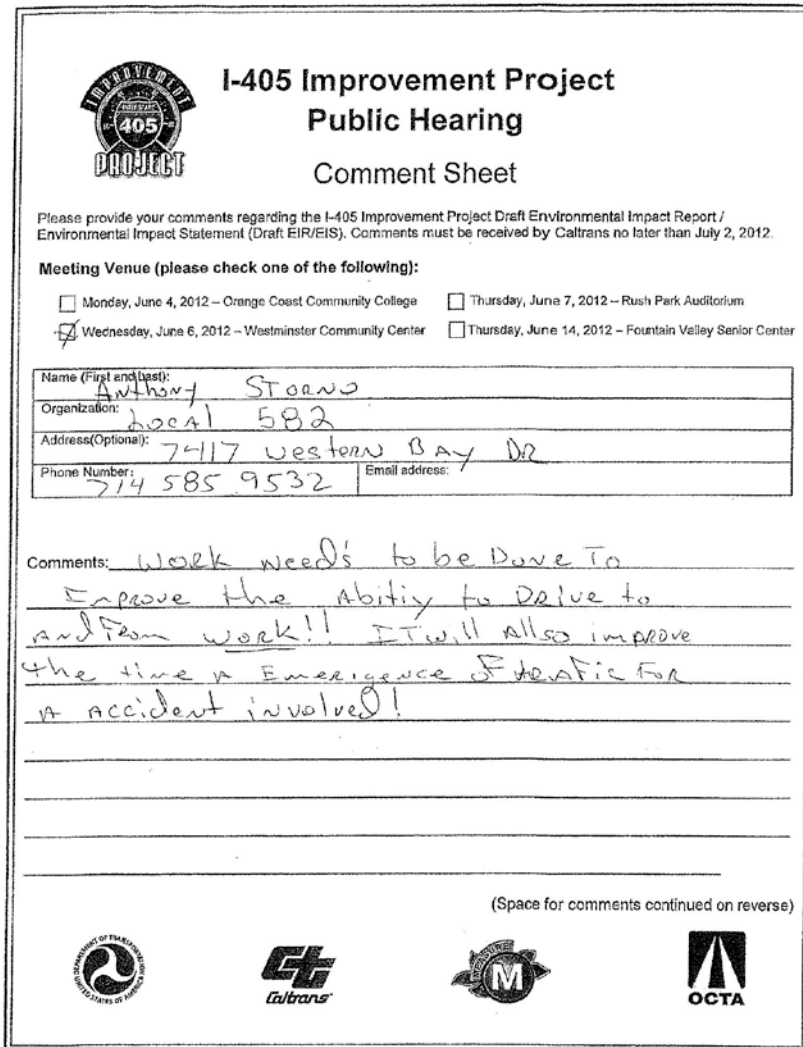 IMPROVEMENT
405
PROJECT
I-405 Improvement Project
Public Hearing
Comment Sheet
Please provide your comments regarding the I-405 Improvement Project Draft Environmental Impact Report /
Environmental Impact Statement (Draft EIR/EIS). Comments must be received by Caltrans no later than July 2, 2012.
Meeting Venue (please check one of the following):
Monday, June 4, 2012 – Orange Coast Community College
Thursday, June 7, 2012 – Rush Park Auditorium
Wednesday, June 6, 2012 – Westminster Community Center
Thursday, June 14, 2012 – Fountain Valley Senior Center
Name (First and Last): Anthony STORNO
Organization: Local 582
Address(Optional): 7417 Western Bay DR
Phone Number: 714 585 9532
Email address:
Comments: Work Need's to be Done To
Improve the Abitiy to Drive to
And From Work!! IT will Allso improve
the time A Emerigence of trafic For
A Accident involved!
(Space for comments continued on reverse)
DEPARTMENT OF TRANSPORTATION
UNITED STATES OF AMERICA
Caltrans
MEASURE
M
OCTA